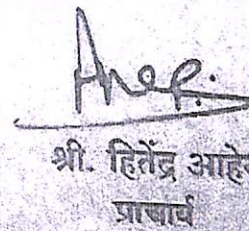 श्री. हितेंद्र आहे
प्राचार्य